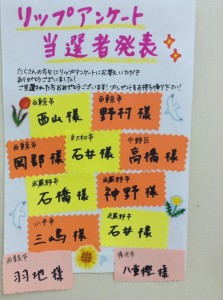 リップアンケート
当選者発表
たくさんの方々にリップアンケートにお答えいただき
ありがとうございました!
ご当選された方おめでとうございます!プレゼントをお持ち帰り下さい!
西東京市
西山様
西東京市
野村様
西東京市
岡部様
東大和市
石井様
中野区
高橋様
武蔵野市
石橋様
武蔵野市
神野様
小平市
三嶋様
武蔵野市
石井様
西東京市
羽地様
八重樫様